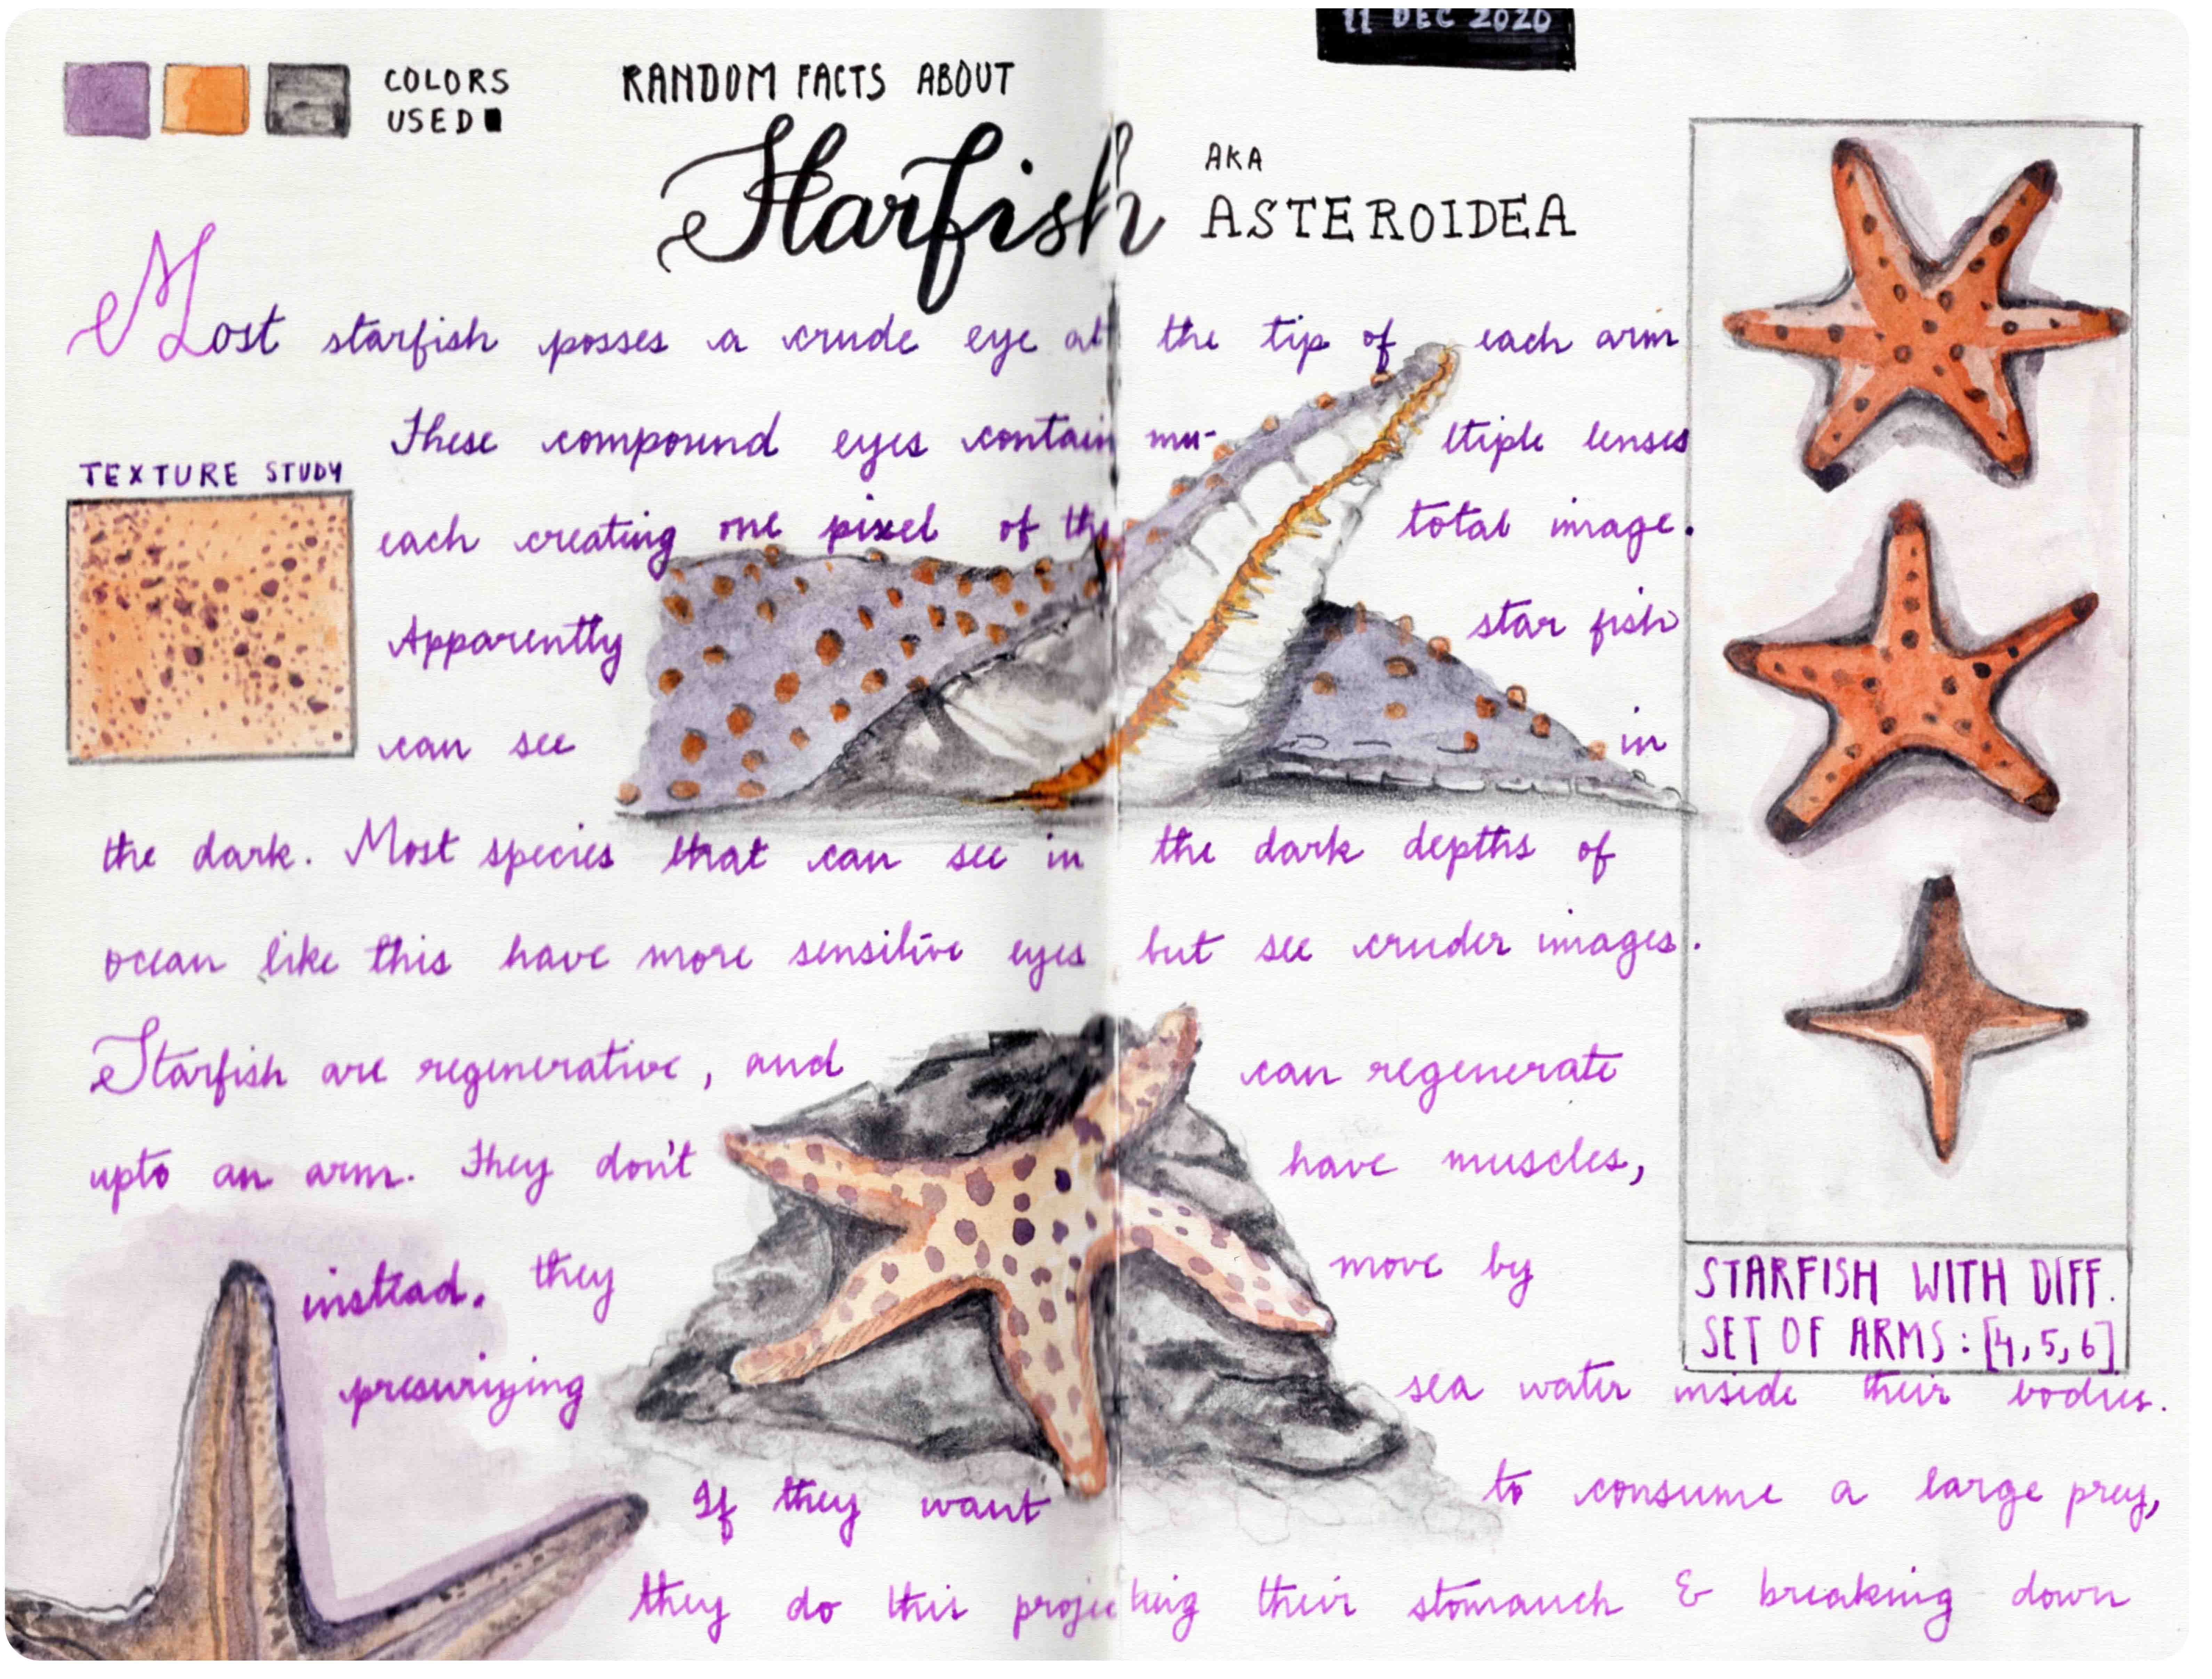 11 DEC 2020
COLORS
USED
RANDOM FACTS ABOUT
Starfish
AKA
ASTEROIDEA
Most starfish posses a crude eye at the tip of each arm
These compound eyes contain mu- ltiple lenses
TEXTURE STUDY
each creating one pixel of the total image.
Apparently star fish
can see in
the dark. Most species that can see in the dark depths of
ocean like this have more sensitive eyes but see cruder images.
Starfish are regenerative, and can regenerate
upto an arm. They don't have muscles,
instead, they move by
presurizing sea water inside their bodies.
If they want to consume a large prey,
they do this projecting their stomauch & breaking down
STARFISH WITH DIFF.
SET OF ARMS: [4, 5, 6]